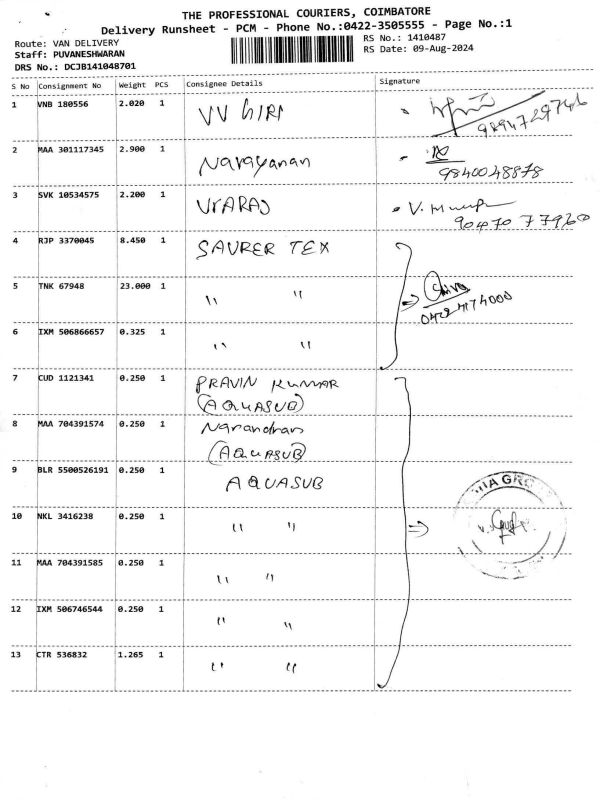 THE PROFESSIONAL COURIERS, COIMBATORE
Delivery Runsheet - PCM - Phone No.:0422-3505555 - Page No.:1
Route: VAN DELIVERY
RS No.: 1410487
Staff: PUVANESHWARAN
RS Date: 09-Aug-2024
DRS No.: DCJB141048701
S No Consignment No Weight PCS Consignee Details Signature
1 VNB 180556 2.020 1 VV GIRI
9894729746
2 MAA 301117345 2.900 1 Narayanan
9840048878
3 SVK 10534575 2.200 1 UVARAJ V.
90470 77960
4 RJP 3370045 8.450 1 SAURER TEX
5 TNK 67948 23.000 1 " "
0422 4174000
6 IXM 506866657 0.325 1 " "
7 CUD 1121341 0.250 1 PRAVIN KUMAR
(AQUASUB)
8 MAA 704391574 0.250 1 Narandran
(AQUASUB)
9 BLR 5500526191 0.250 1 AQUASUB
10 NKL 3416238 0.250 1 " "
11 MAA 704391585 0.250 1 " "
12 IXM 506746544 0.250 1 " "
13 CTR 536832 1.265 1 " "